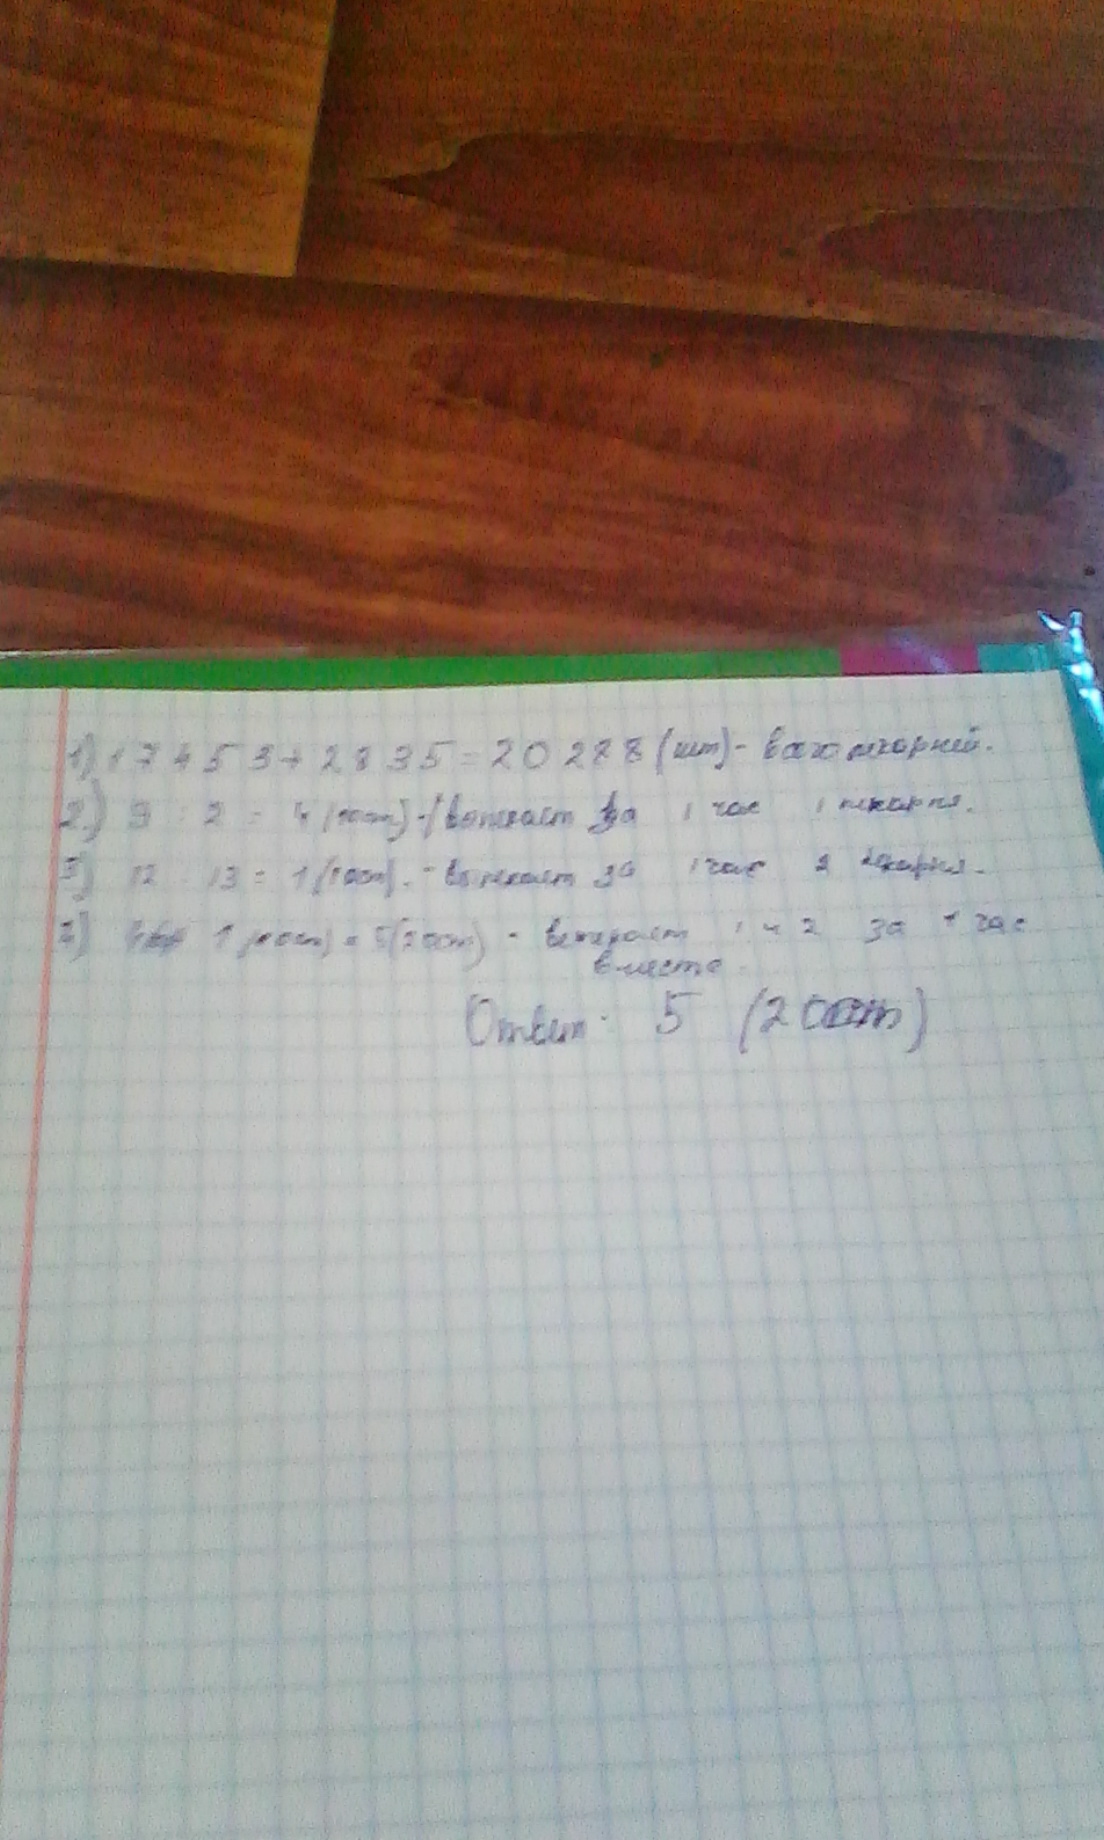 1) 17453+2835=20288 (шт)- всего пекарней.
2.) 9 2 = 4 (ост)- выпекает за 1 час 1 пекарня.
3) 12 13 = 1 (ост). - выпекает за 1 час 2 пекарня.
1 = 5 (2 ост) - выпекает 1 и 2 за 1 час
вместе.
Ответ: 5 (20ст)